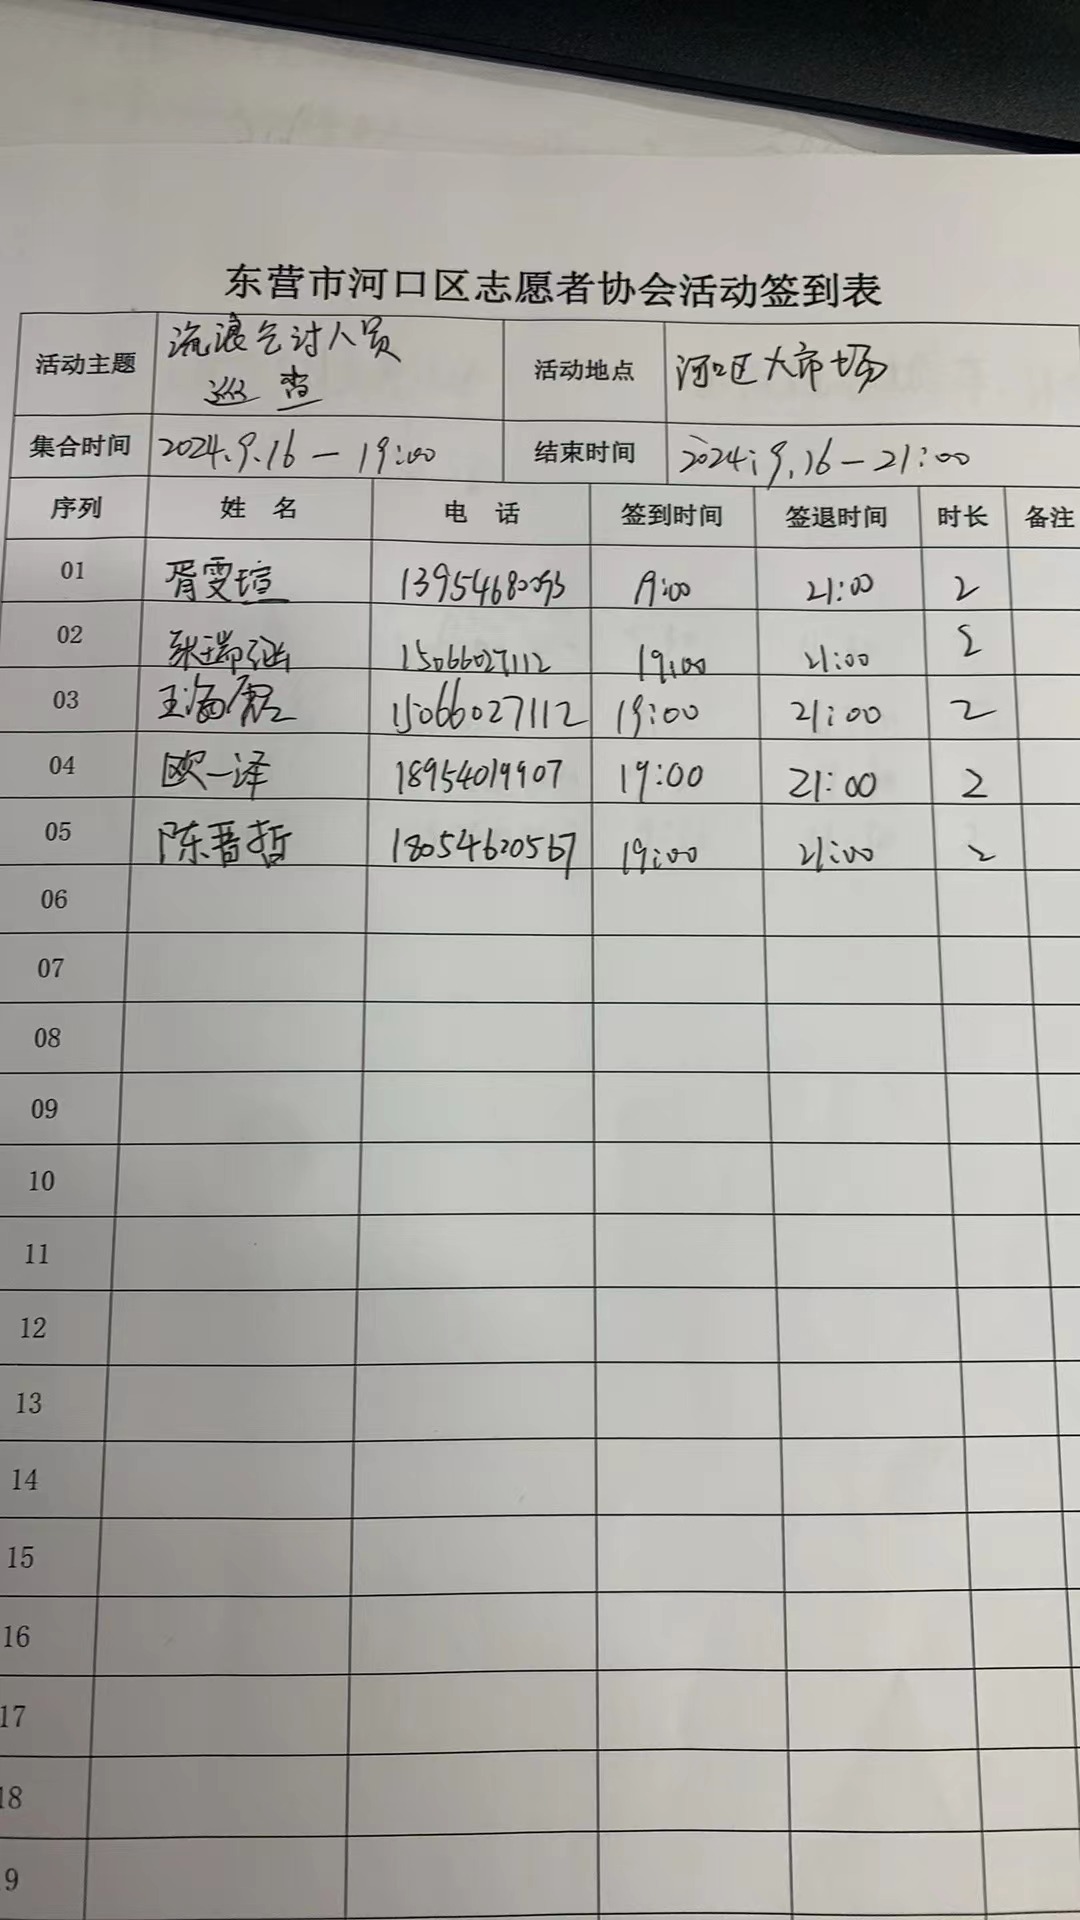 东营市河口区志愿者协会活动签到表
活动主题 流浪乞讨人员 活动地点 河口区大市场
巡查
集合时间 2024.9.16－19:00 结束时间 2024.9.16－21:00
序列 姓名 电话 签到时间 签退时间 时长 备注
01 胥雯瑄 21:00 2
02 张瑞 15066027112 19:00 21:00 2
03 王海 15066027112 19:00 21:00 2
04 欧一泽 18954019907 19:00 21:00 2
05 陈晋哲 18054620567 19:00 21:00 2
06
07
08
09
10
11
12
13
14
15
16
17
18
9